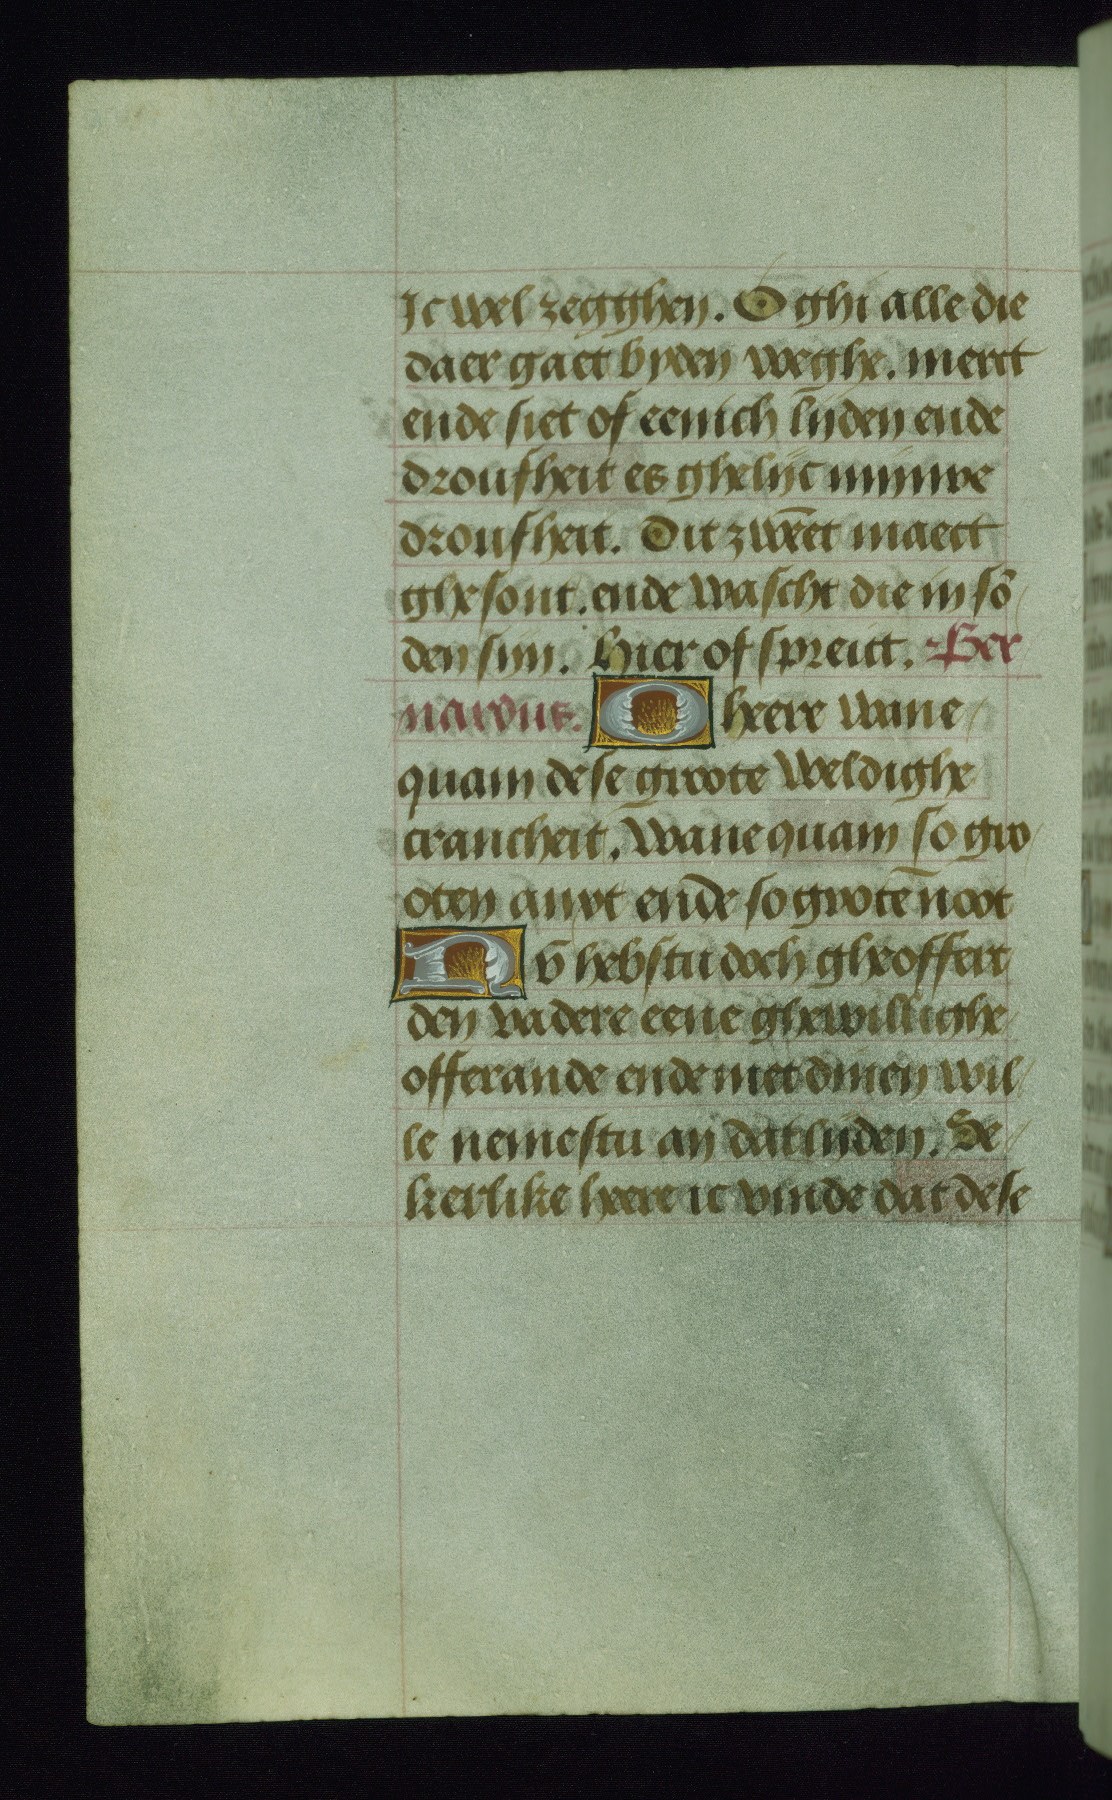 Ic wel zegghen. O ghi alle die
daer gaet byden weghe. merct
ende siet of eenich lijden ende
droufheit es ghelijc mijnwe
droufheit. Dit zwēet maect
ghesont. ende wascht die in sō
den sijn. Hier of spreict. Ber
nardus. O heere wane
quam dese groote weldighe
crancheit. Wane quam so gro
oten anxt ende so grotē noot
Nv hebstu doch gheoffert
den vadere eene ghewillighe
offerande ende met dinen wil
le nemestu an dat lijden. Se
kerlike heere ic vinde dat dese